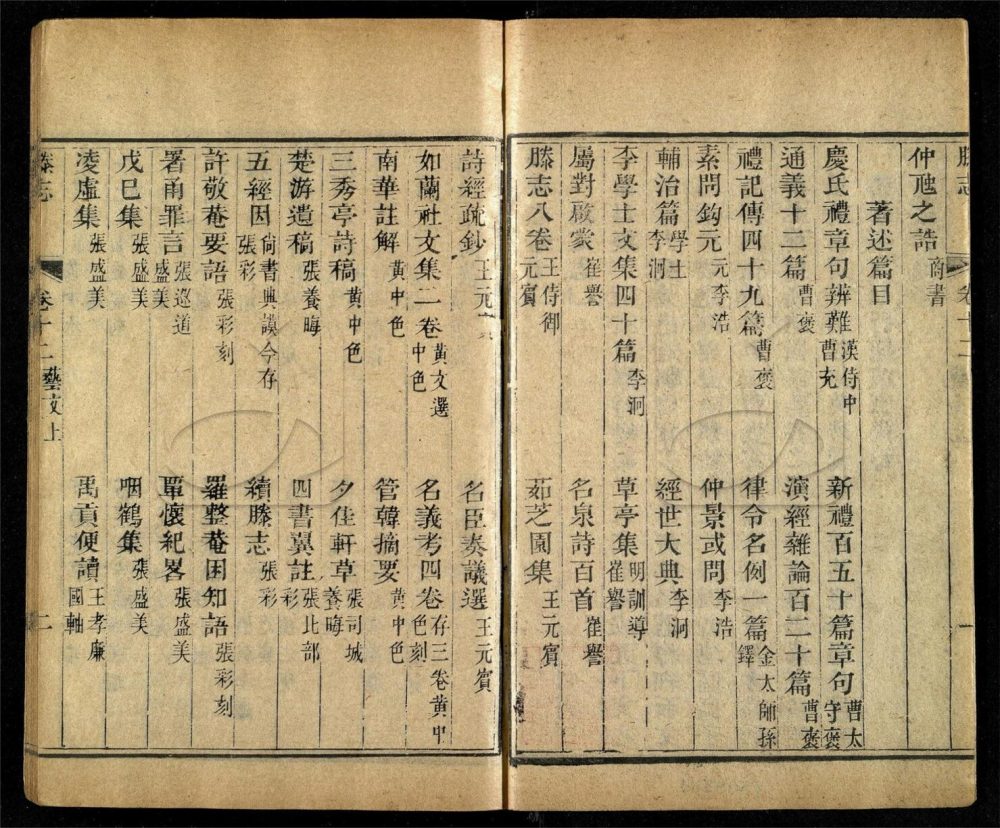 滕志 卷十二
仲虺之誥 商書
著述篇目
慶氏禮章句辨難 漢侍中曹充 新禮百五十篇章句 曹太守褒
通義十二篇 曹褒 演經雜論百二十篇 曹褒
禮記傳四十九篇 曹褒 律令名例一篇 金太師孫鐸
素問鈎元 元李浩 仲景或問 李浩
輔治篇 學士李泂 經世大典 李泂
李學士文集四十篇 李泂 草亭集 明訓導崔譽
屬對啟蒙 崔譽 名泉詩百首 崔譽
滕志八卷 王侍御元賓 茹芝園集 王元賓
詩經疏鈔 王元賓 名臣奏議選 王元賓
如蘭社文集二卷 黄文選中色 名義考四卷 存三卷黄中色刻
南華註解 黄中色 管韓摘要 黄中色
三秀亭詩稿 黄中色 夕佳軒草 張司城養晦
楚游遺稿 張養晦 四書翼註 張比部彩
五經因 尙書典謨今存張彩 續滕志 張彩
許敬菴要語 張彩刻 羅整菴困知語 張彩刻
署甬罪言 張巡道盛美 覃懷紀畧 張盛美
戊巳集 張盛美 咽鶴集 張盛美
凌虛集 張盛美 禹貢便讀 王孝廉國軸
滕志 卷十二藝文上 二